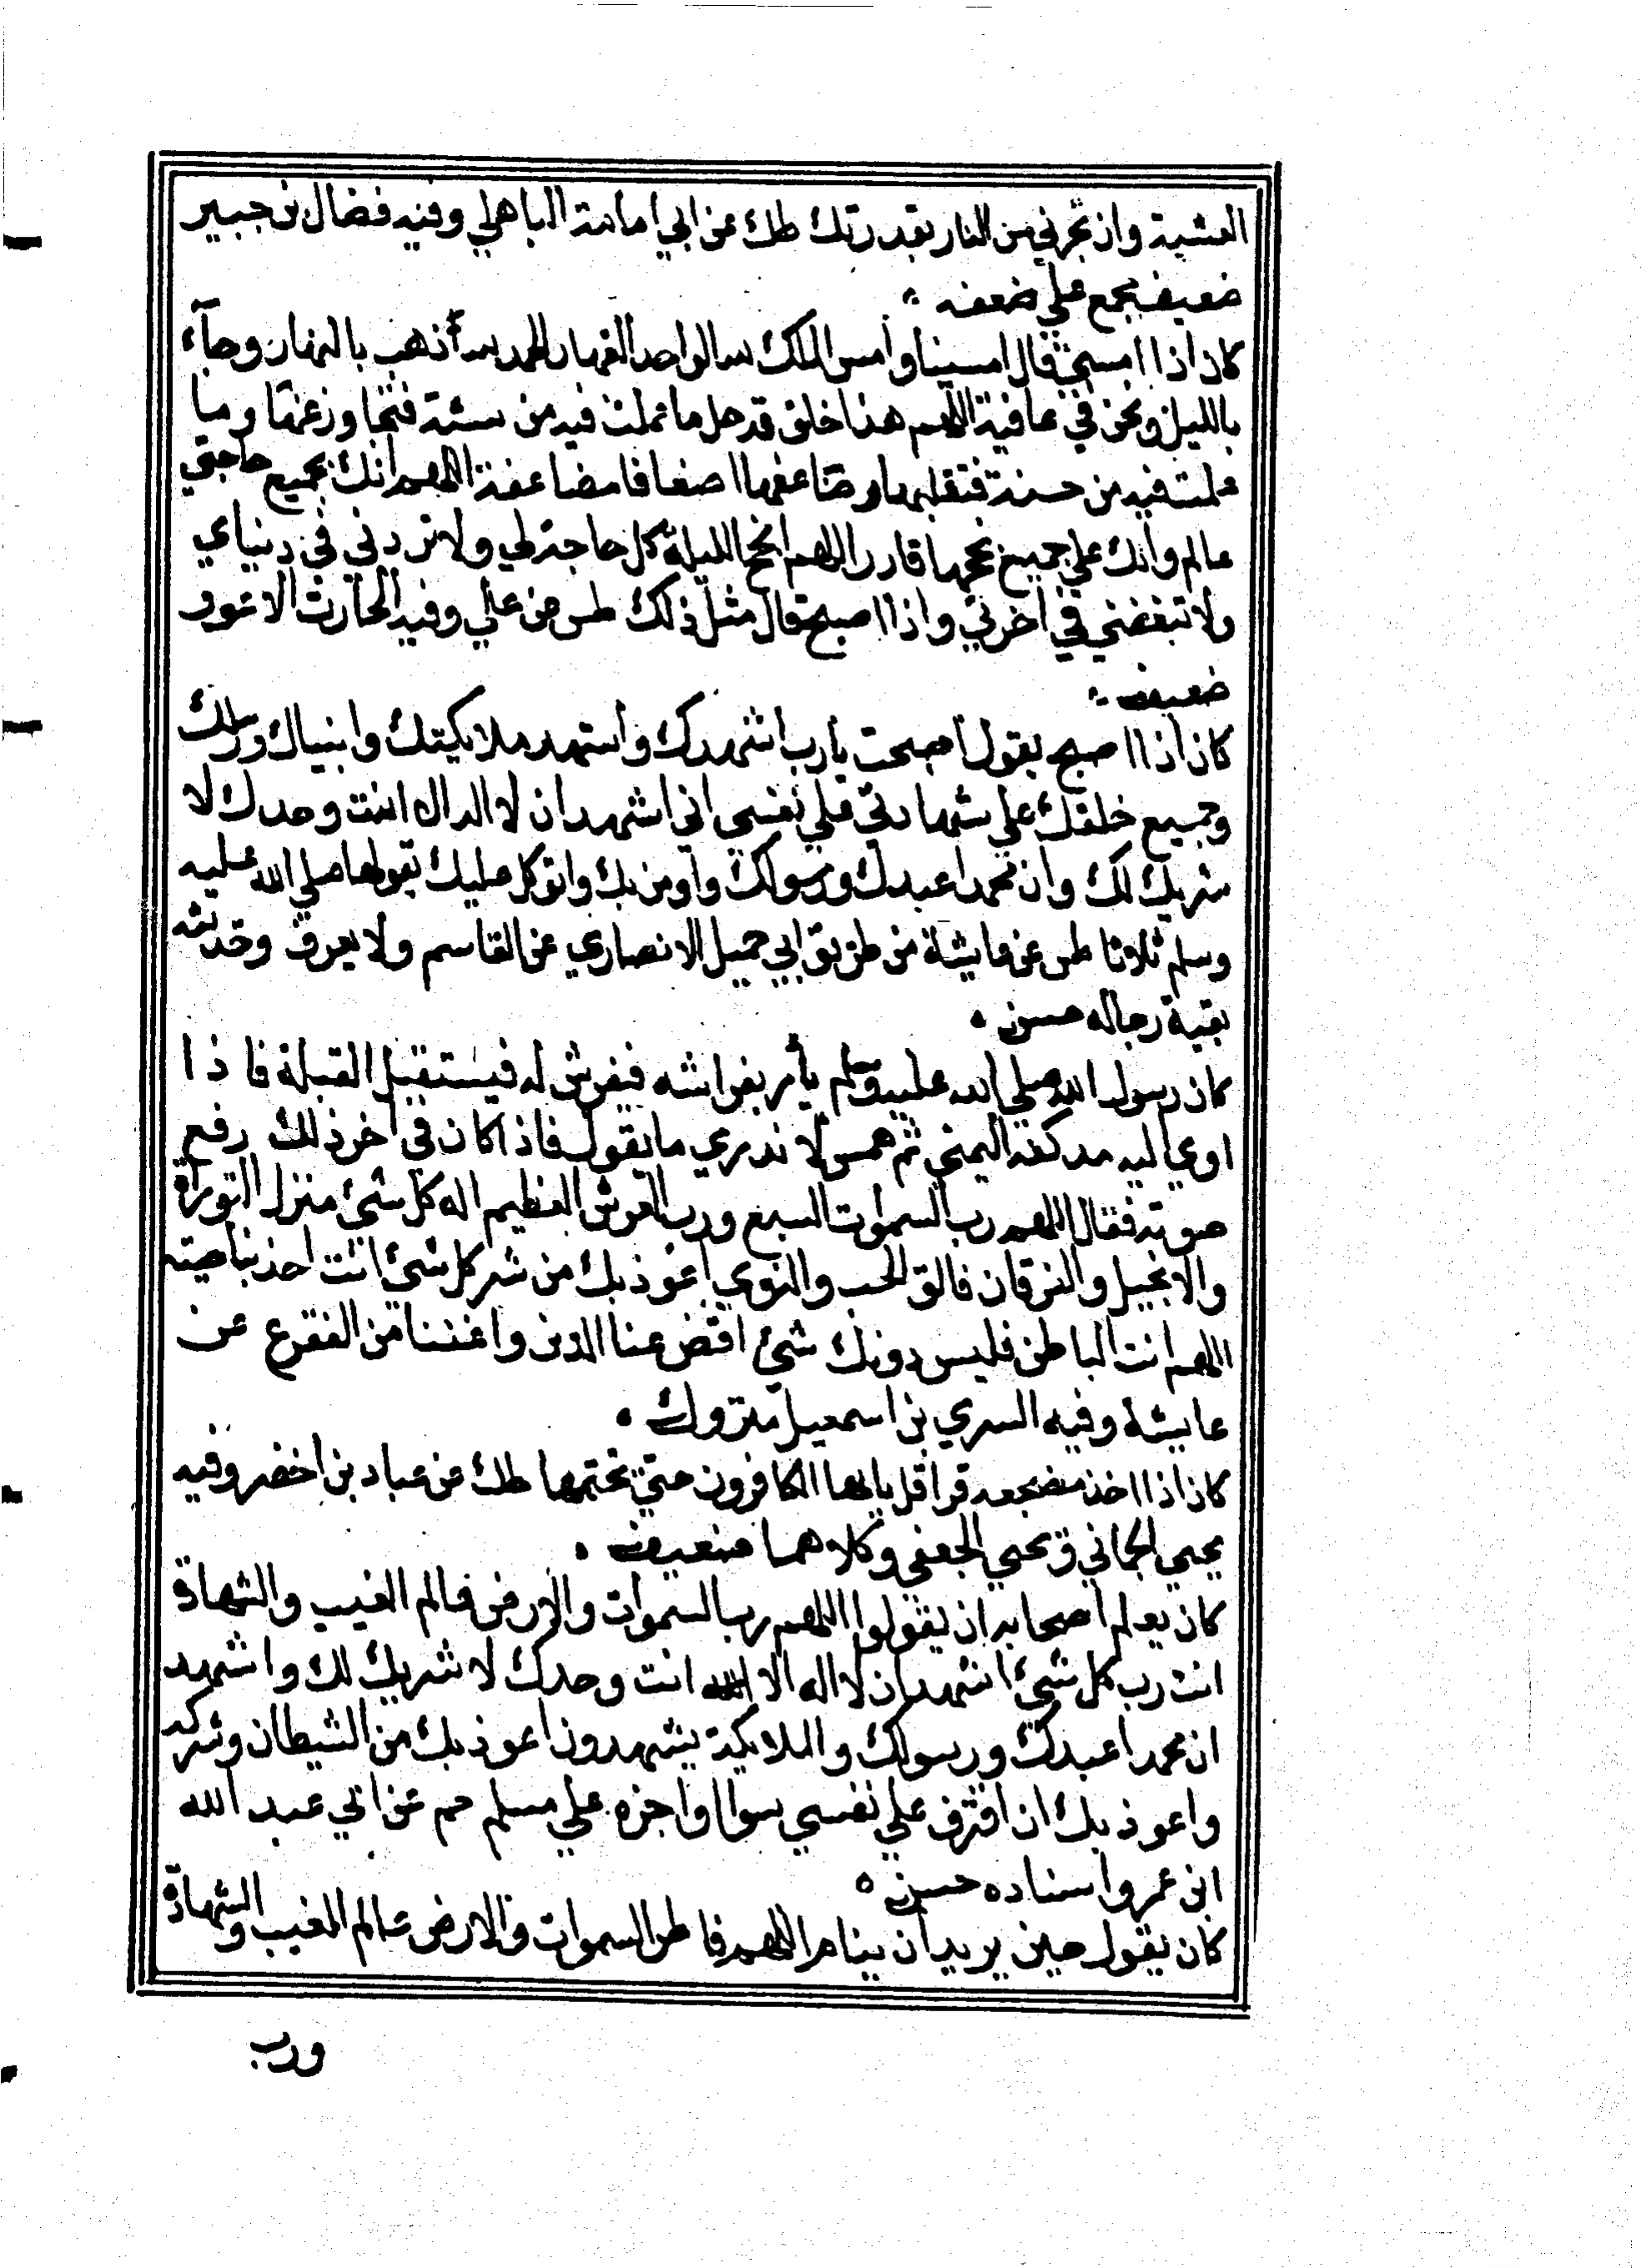 العشية وان تجرني من النار بقدرتك طك عن ابي امامة الباهلي وفيه فضال بن جبير
ضعيف مجمع علي ضعفه
كان اذا امسي قال امسينا وامسي الملك لله الواحد القهار الحمد لله الذي ذهب بالنهار وجاء
بالليل ونحن في عافية اللهم هذا خلق قد جل ما عملت فيه من سئة فتجاوز عنها وما
عملت فيه من حسنة فتقبلها وضاعفها اضعافا مضاعفة اللهم انك بجميع حاجتي
عالم وانك علي جميع نجحها قادر اللهم انجح الليلة كل حاجة لي ولا تردني في دنياي
ولا تبغضني في اخرتي واذا اصبح قال مثل ذلك طس عن علي وفيه الحارث الاعور
ضعيف
كان اذا اصبح يقول اصبحت يارب اشهدك واشهد ملايكتك وانبياك ورسلك
وجميع خلقك علي شهادتي علي نفسي اني اشهد ان لا اله الا انت وحدك لا
شريك لك وان محمدا عبدك ورسولك واومن بك واتوكل عليك يقولها صلي الله عليه
وسلم ثلاثا طس عن عايشة من طريق ابي جميل الانصاري عن القاسم ولا يعرف وحديثه
بقية رجاله حسن
كان رسول الله صلي الله عليه وسلم يأمر بفراشه فيفرش له فيستقبل القبلة فاذا
اوي اليه مد كفه اليمني ثم همس لا ندري ما يقول فاذا كان في اخر ذلك رفع
صوته فقال اللهم رب السموات السبع ورب العرش العظيم اله كل شيئ منزل التوراة
والانجيل والفرقان فالق الحب والنوي اعوذ بك من شر كل شيئ انت اخذ بناصيته
اللهم انت الباطن فليس دونك شيئ اقض عنا الدين واغننا من الفقر ع عن
عايشة وفيه السري بن اسمعيل متروك
كان اذا اخذ مضجعه قرا قل يايها الكافرون حتي تختمها طك عن عباد بن اخضر وفيه
يحيي الحماني ق يحيي الجعفي وكلاهما ضعيف
كان يعلم اصحابه ان يقولوا اللهم رب السموات والارض عالم الغيب والشهادة
انت رب كل شيئ اشهد ان لا اله الا الله انت وحدك لا شريك لك واشهد
ان محمدا عبدك ورسولك والملايكة يشهدون اعوذ بك من الشيطان وشركه
واعوذ بك ان اقترف علي نفسي سوا او اجره علي مسلم حم عن ابي عبد الله
ابن عمر واسناده حسن
كان يقول حين يريد ان ينام اللهم فاطر السموات والارض عالم الغيب والشهادة
ورب